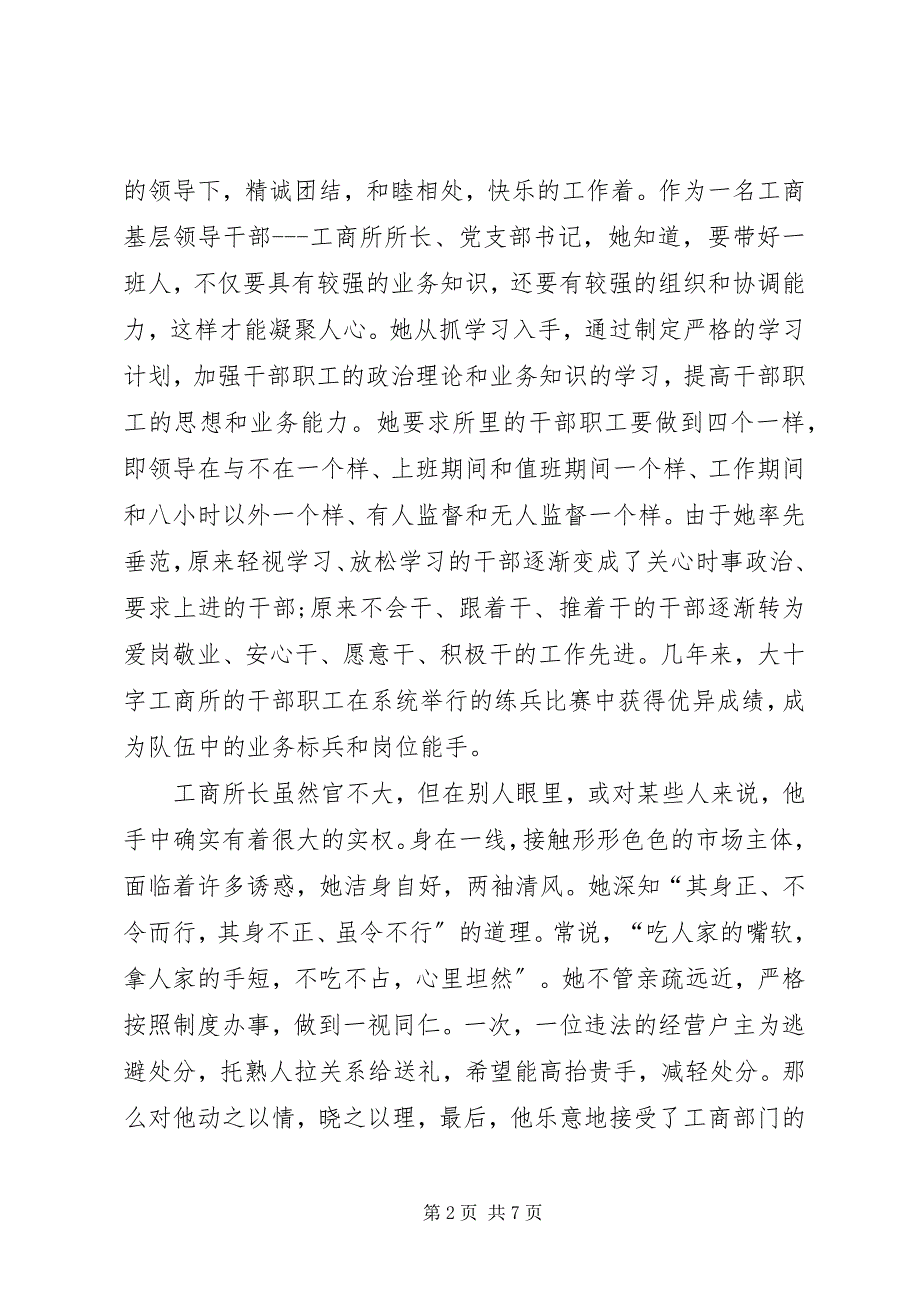 的领导下，精诚团结，和睦相处，快乐的工作着。作为一名工商
基层领导干部---工商所所长、党支部书记，她知道，要带好一
班人，不仅要具有较强的业务知识，还要有较强的组织和协调能
力，这样才能凝聚人心。她从抓学习入手，通过制定严格的学习
计划，加强干部职工的政治理论和业务知识的学习，提高干部职
工的思想和业务能力。她要求所里的干部职工要做到四个一样，
即领导在与不在一个样、上班期间和值班期间一个样、工作期间
和八小时以外一个样、有人监督和无人监督一个样。由于她率先
垂范，原来轻视学习、放松学习的干部逐渐变成了关心时事政治、
要求上进的干部;原来不会干、跟着干、推着干的干部逐渐转为
爱岗敬业、安心干、愿意干、积极干的工作先进。几年来，大十
字工商所的干部职工在系统举行的练兵比赛中获得优异成绩，成
为队伍中的业务标兵和岗位能手。
工商所长虽然官不大，但在别人眼里，或对某些人来说，他
手中确实有着很大的实权。身在一线，接触形形色色的市场主体，
面临着许多诱惑，她洁身自好，两袖清风。她深知“其身正、不
令而行，其身不正、虽令不行〞的道理。常说，“吃人家的嘴软，
拿人家的手短，不吃不占，心里坦然〞。她不管亲疏远近，严格
按照制度办事，做到一视同仁。一次，一位违法的经营户主为逃
避处分，托熟人拉关系给送礼，希望能高抬贵手，减轻处分。那
么对他动之以情，晓之以理，最后，他乐意地接受了工商部门的
第 2 页 共 7 页